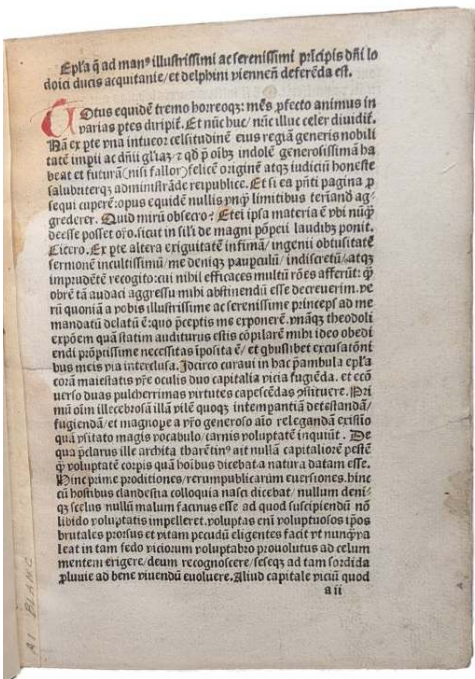 Epl̃a q̃ ad manꝰ illustrissimi ac serenissimi prĩcipis dñi lo
doici ducis acquitanie/et delphini viennen̄ deferẽda est.
TOtus equidẽ tremo horreoqꝫ: mẽs ꝓfecto animus in
varias ptes diripit̃. Et nũc huc/ nũc illuc celer diuidit̃.
Nã ex pte vna intueor celsitudinẽ eius regiã generis nobili
tatẽ impii ac dñii gl̃iaꝫ/ ⁊ qd̃ p̱ oĩbꝰ indolẽ generosissimã ha
beat et futurã(nisi fallor)felicẽ originẽ atqꝫ iudiciũ honeste
salubriterqꝫ administrãde reipublice. Et si ea pñti pagina ꝓ
sequi cuperẽ:opus equidẽ nullis vnqꝫ limitibus teriãd ag-
grederer. Quid mirũ obsecro? Etei ipsa materia ẽ vbi nũqꝫ
deesse posset oro.sicut in sil̃i de magni põpeii laudibꝫ ponit.
Cicero. Ex pte altera exiguitatẽ infimã/ ingenii obtusitatẽ
sermonẽ incultissimũ/ me deniqꝫ paupculũ/ indiscretũ/atqꝫ
imprudẽtẽ recogito:cui nihil efficaces multũ rões afferũt: ꝙ
obrẽ tã audaci aggressu mihi abstinendũ esse decreuerim. ve
rũ quoniã a vobis illustrissime ac serenissime princeps ad me
mandatũ delatũ ẽ:quo p̃ceptis ms exponerẽ.vnãqꝫ theodoli
expõem quã statim auditurus estis cõpilarẽ mihi ideo obedi
endi prõptissime necessitas iposita ẽ/ et qbuslibet excusatõni
bus meis via interclusa. Idcirco curaui in hac p̃ambula epl̃a
corã maiestatis vr̃e oculis duo capitalia vicia fugiẽda. et ecõ
uerso duas pulcherrimas virtutes capescẽdas ꝯstituere. Pri
mũ oĩm illecebrosã illã vilẽ quoqꝫ intempantiã detestandã/
fugiendã/ et magnope a vr̃o generoso aĩo relegandã existĩo
quã vsitato magis vocabulo/ carnis voluptatẽ inquiũt . De
qua p̃clarus ille archita tharẽtinꝰ ait nullã capitaliorẽ pestẽ
ꝙ voluptatẽ corpis quã hoĩbus dicebat a natura datam esse.
Hinc prime proditiones/rerumpublicarum euersiones. hinc
cũ hostibus clandestia colloquia nasci dicebat/ nullum deni-
qꝫ scelus nullũ malum facinus esse ad quod suscipiendũ nõ
libido voluptatis impelleret.voluptas enĩ voluptuosos ipõs
brutales prorsus et vitam pecudũ eligentes facit vt nunq̃ va
leat in tam fedo viciorum voluptabro prouolutus ad celum
mentem erigere/deum recognoscere/seseqꝫ ad tam sordida
ꝓluuie ad bene viuendũ euoluere. Aliud capitale viciũ quod
a ii
A1 BLANC